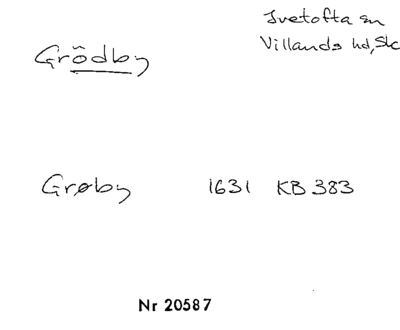 Ivetofta sn
Grödby
Villands hd, Sk
Grøby 1631 KB 383
Nr 20587